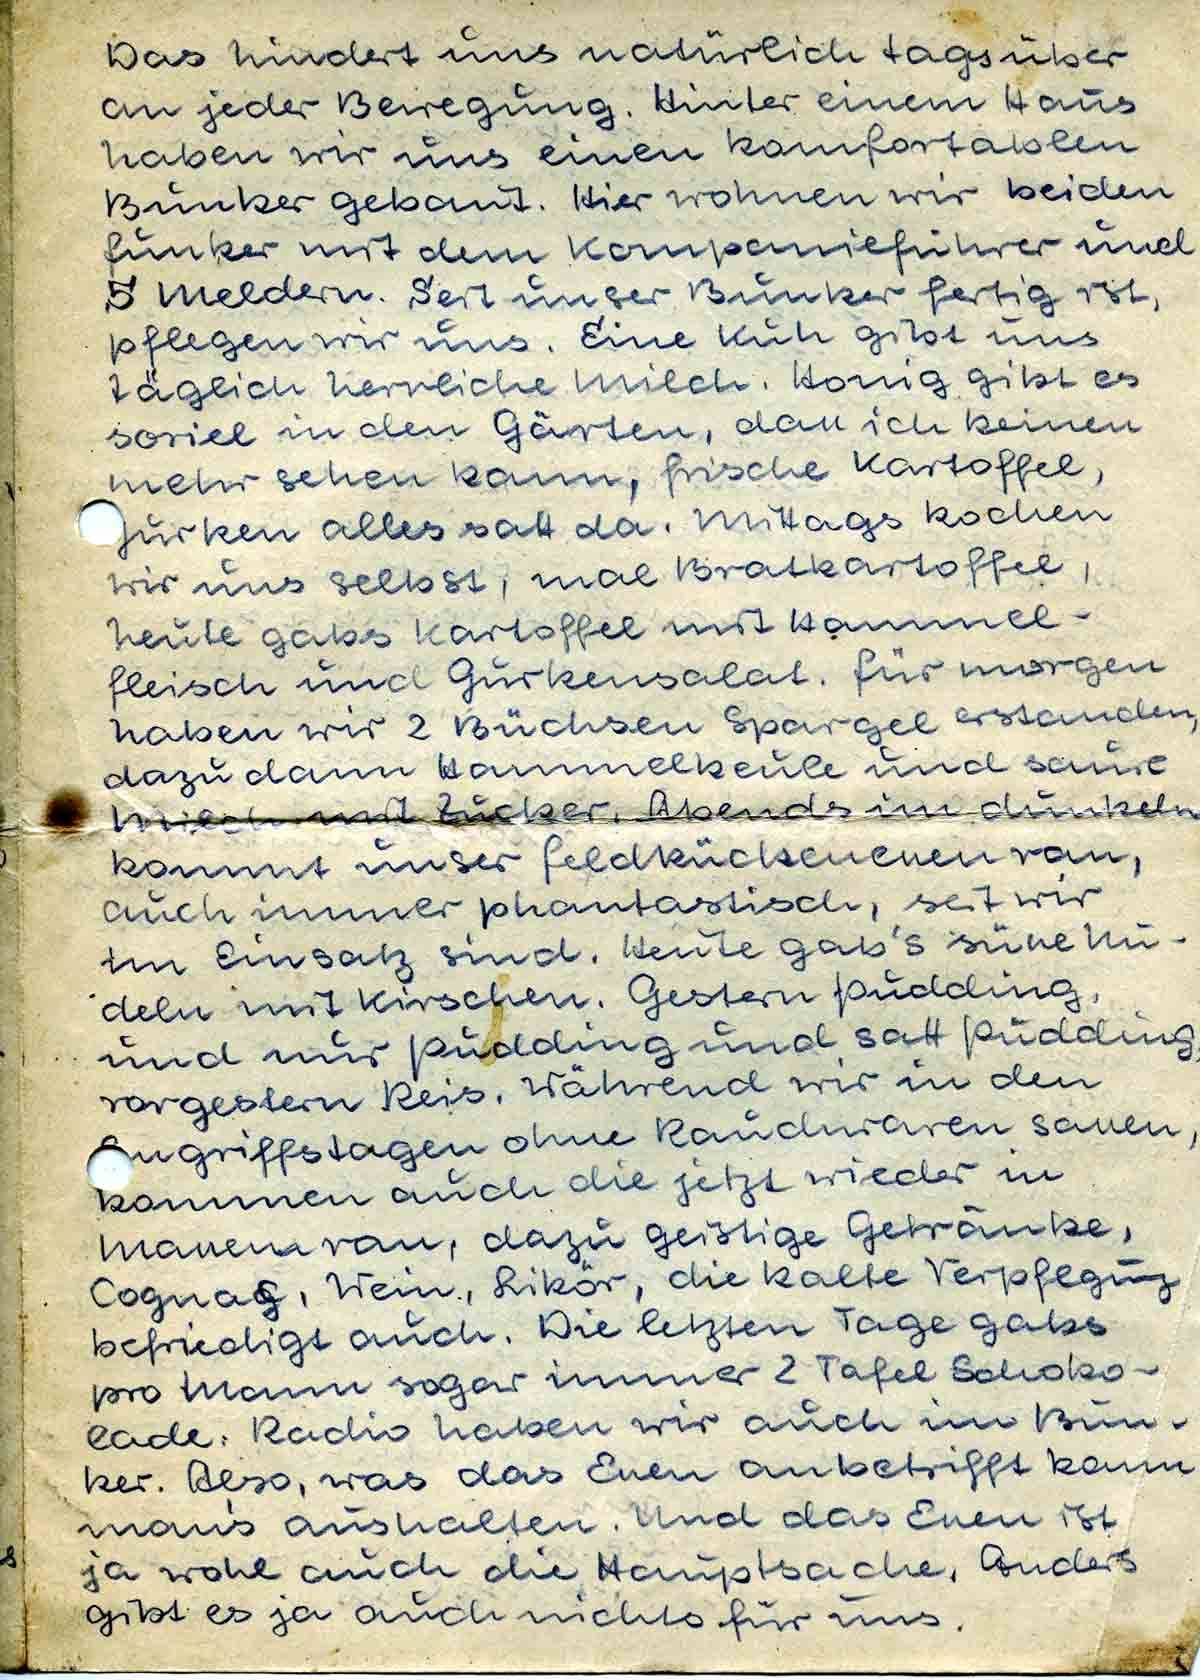 Das hindert uns natürlich tagsüber
an jeder Bewegung. Hinter einem Haus
haben wir uns einen komfortablen
Bunker gebaut. Hier wohnen wir beiden
Funker mit dem Kompanieführer und
5 Meldern. Seit unser Bunker fertig ist,
pflegen wir uns. Eine Kuh gibt uns
täglich herrliche Milch. Honig gibt es
soviel in den Gärten, daß ich keinen
mehr sehen kann, frische Kartoffel,
Gurken alles satt da. Mittags kochen
wir uns selbst, mal Bratkartoffel,
heute gabs Kartoffel mit Hammel-
fleisch und Gurkensalat. Für morgen
haben wir 2 Büchsen Spargel erstanden,
dazu dann Hammelkeule und saure
Milch mit Zucker. Abends im dunkeln
kommt unser Feldküchenessen ran,
auch immer phantastisch, seit wir
im Einsatz sind. Heute gab's süße Nu-
deln mit Kirschen. Gestern Pudding,
und nur Pudding und satt Pudding,
vorgestern Reis. Während wir in den
Angriffstagen ohne Rauchwaren saßen,
kommen auch die jetzt wieder in
Massen ran, dazu geistige Getränke,
Cognag, Wein, Likör, die kalte Verpflegung
befriedigt auch. Die letzten Tage gabs
pro Mann sogar immer 2 Tafel Schoko-
lade. Radio haben wir auch im Bun-
ker. Also, was das Essen anbetrifft kann
man's aushalten. Und das Essen ist
ja wohl auch die Hauptsache. Anders
gibt es ja auch nichts für uns.